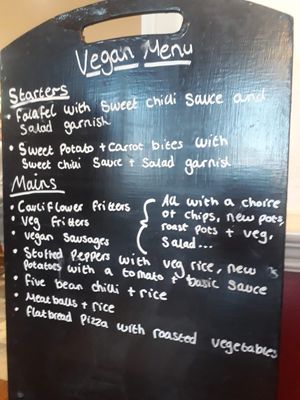 Vegan Menu
Starters
• Falafel with Sweet chilli Sauce and
Salad garnish
• Sweet Potato + Carrot bites with
Sweet chilli Sauce + Salad garnish
Mains
• Cauliflower fritters
• Veg fritters
• Vegan Sausages
{ All with a choice
of chips, new pots,
roast pots + veg,
Salad...
• Stuffed Peppers with veg rice, new
Potatoes with a tomato + basic Sauce
• Five bean chilli + rice
• Meatballs + rice
• Flatbread Pizza with roasted vegetables